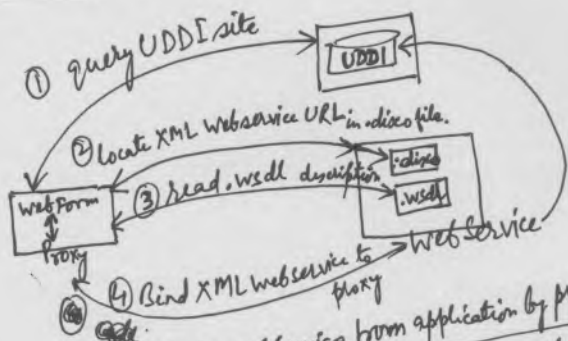 ① query UDDI site
UDDI
② Locate XML Webservice URL in .disco file.
.disco
③ read .wsdl description
.wsdl
WebForm
Proxy
WebService
④ Bind XML Webservice to
proxy
from application by